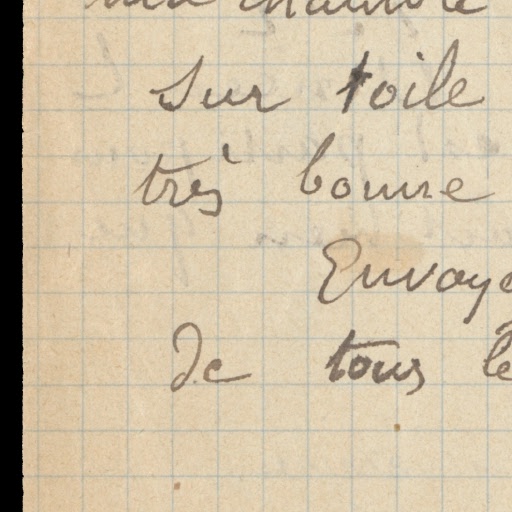 sur toile
très bonne
Envoye
de tous le